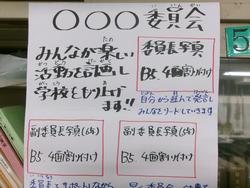 〇〇〇委員会
みんなが楽しい
活動を計画し
学校をもり上げ
ます!!
委員長写真
B5 4画割り付け
自分から進んで発言し
みんなをリードしていきます
副委員長写真(6年)
B5 4画割り付け
副委員長写真(5年)
B5 4画割り付け
5